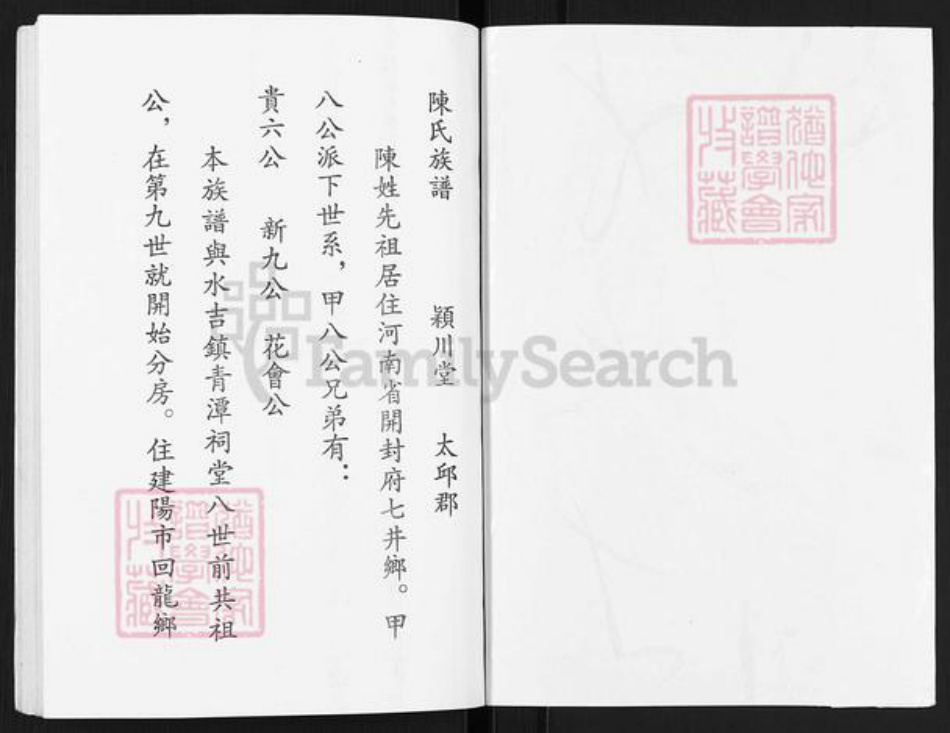 陳氏族譜　穎川堂　太邱郡
陳姓先祖居住河南省開封府七井鄉。甲
八公派下世系，甲八公兄弟有：
貴六公　新九公　花會公
本族譜與水吉鎮青潭祠堂八世前共祖
公，在第九世就開始分房。住建陽市回龍鄉
FamilySearch